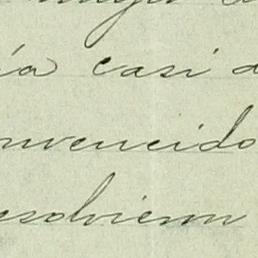 ía casi d
nvencido
esolvieron